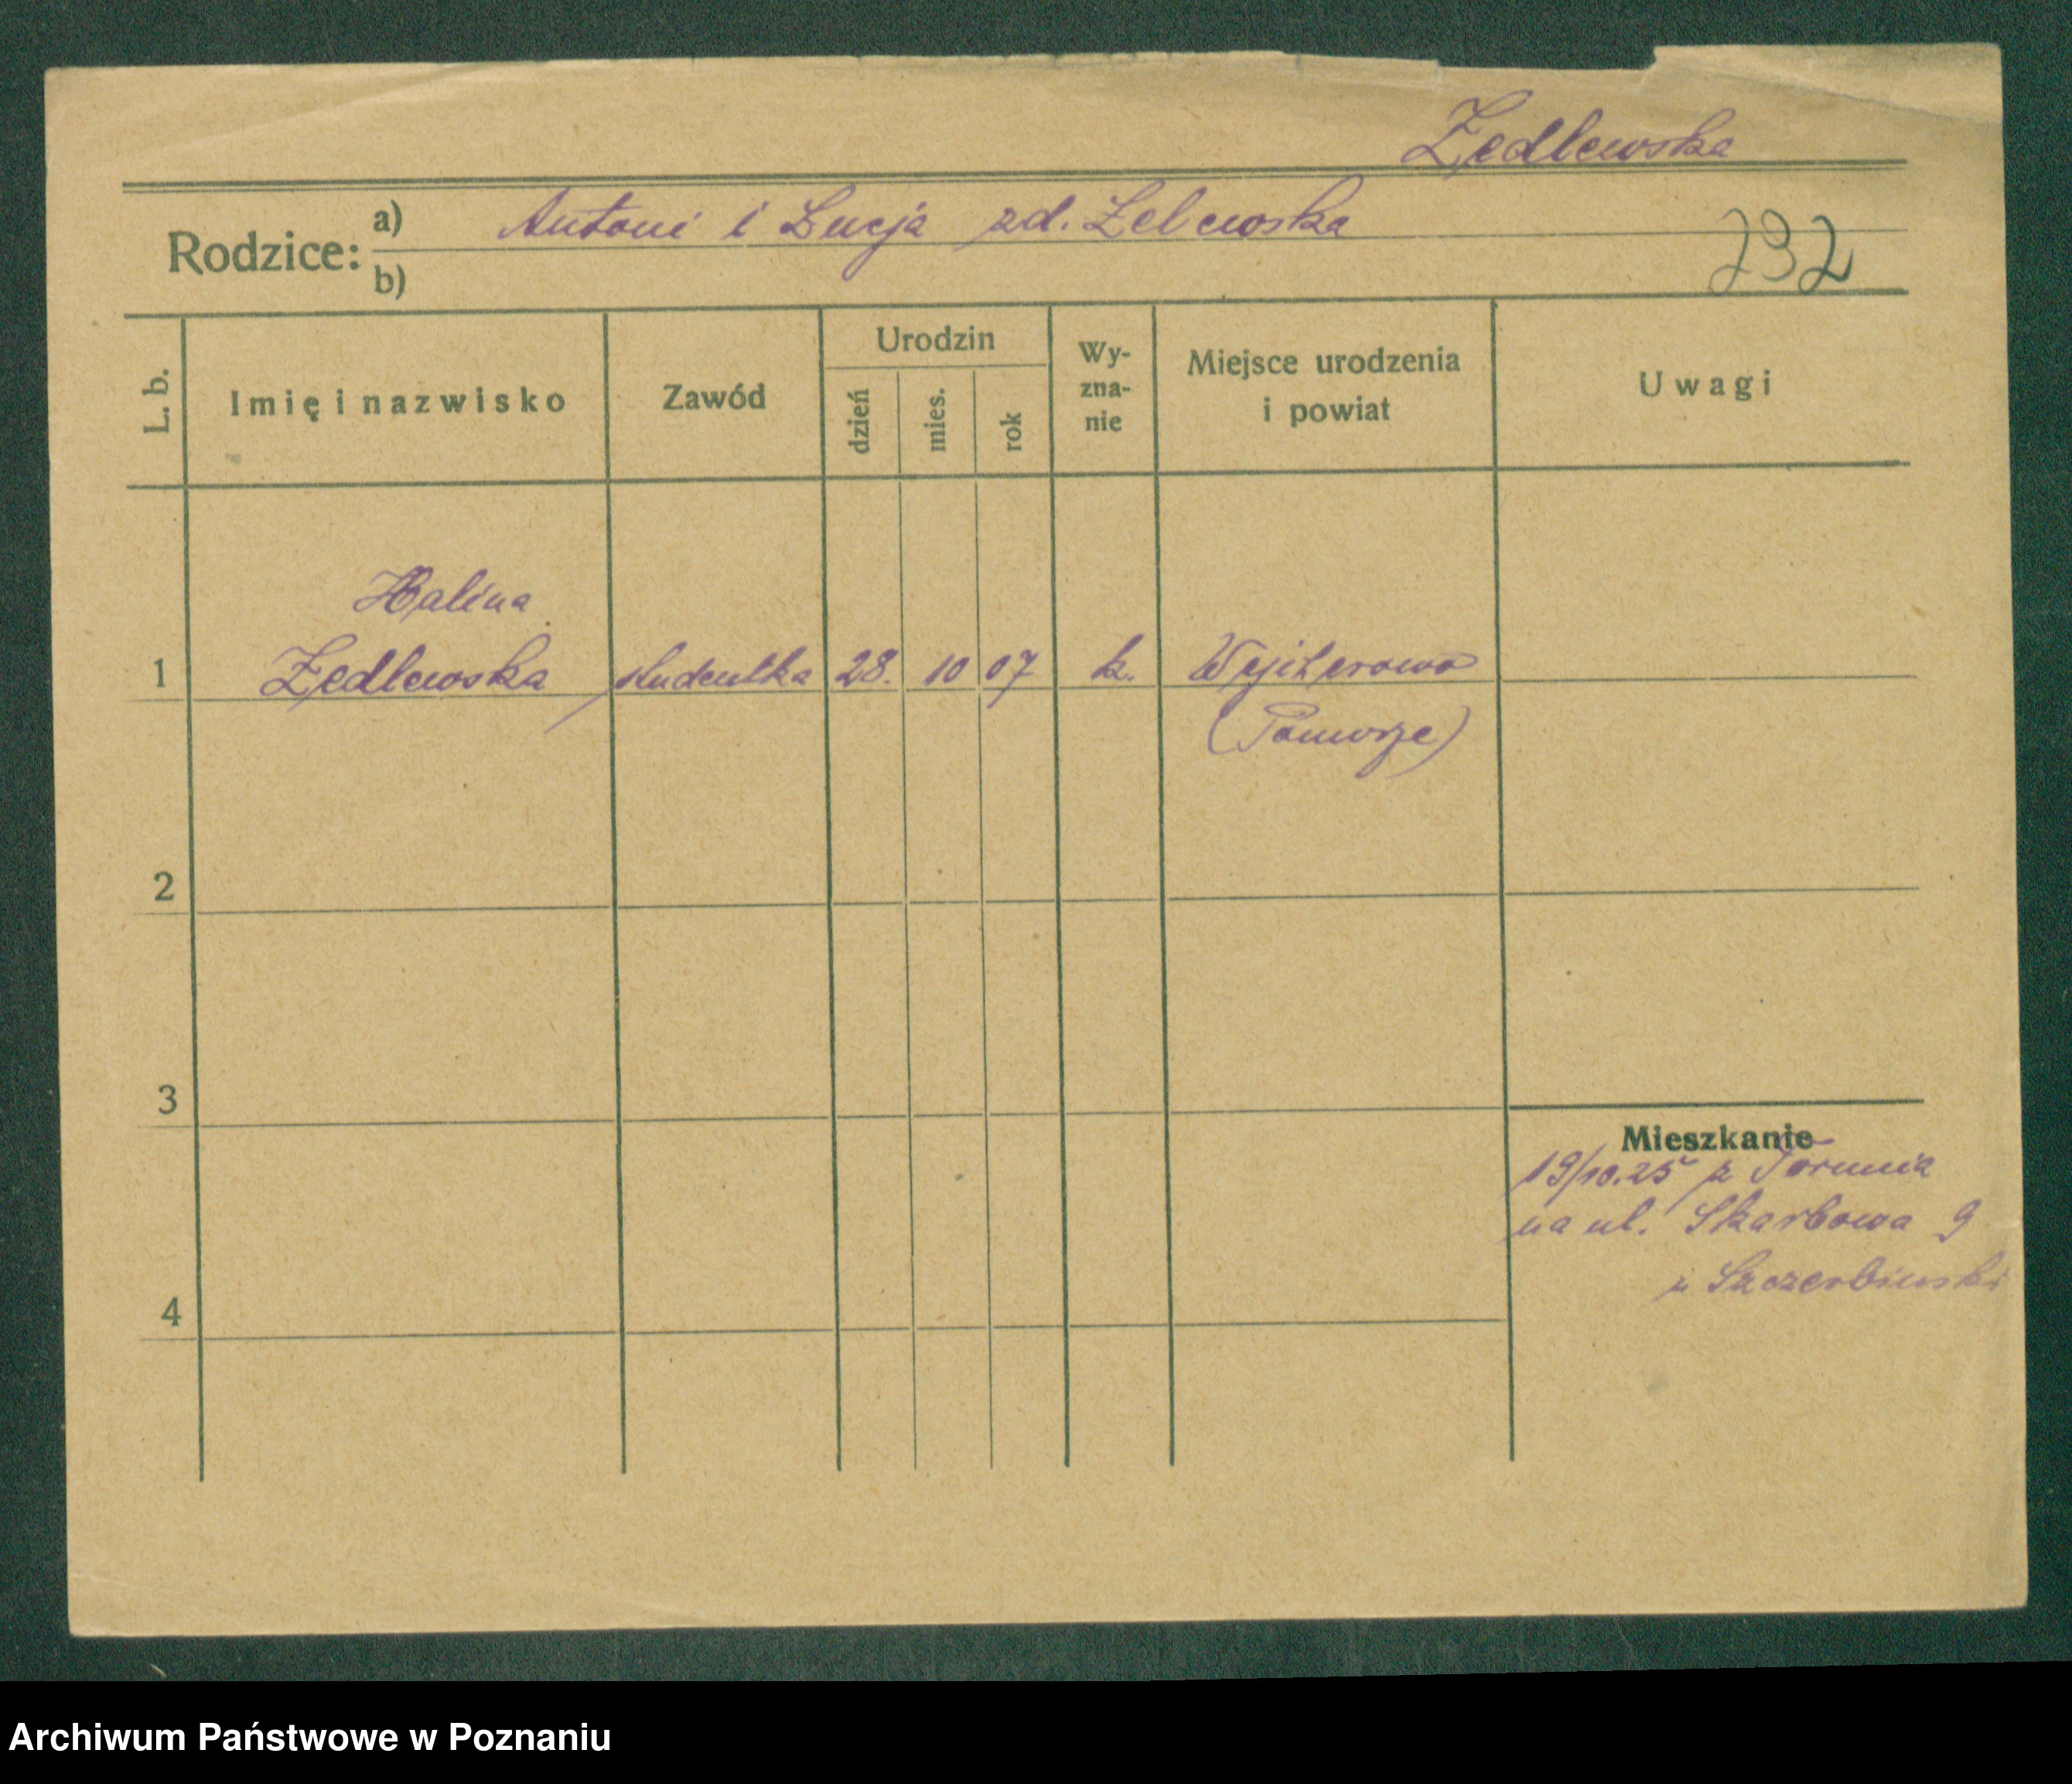 Zędlewska
Rodzice: a) Antoni i Łucja zd. Zelewska
b)
232
L. b. Imię i nazwisko Zawód Urodzin dzień mies. rok Wy-zna-nie Miejsce urodzenia i powiat Uwagi
Halina
1 Zędlewska studentka 28. 10 07 k. Wejherowo
(Pomorze)
2
3
Mieszkanie
19/10.25 z Torunia
na ul. Skarbowa 9
4
Archiwum Państwowe w Poznaniu